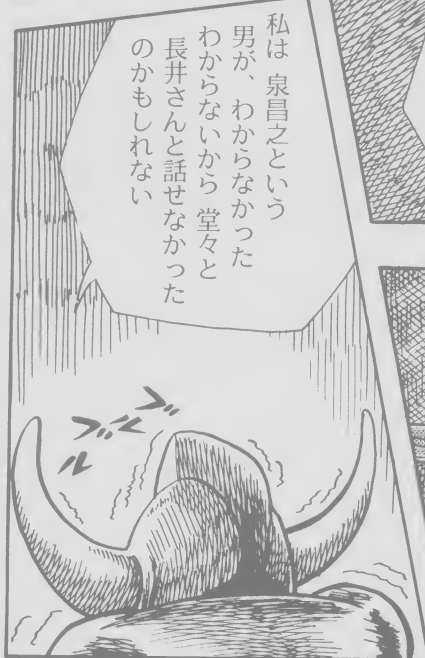 私は 泉昌之という
男が、わからなかった
わからないから 堂々と
長井さんと話せなかった
のかもしれない
ブルブルブル